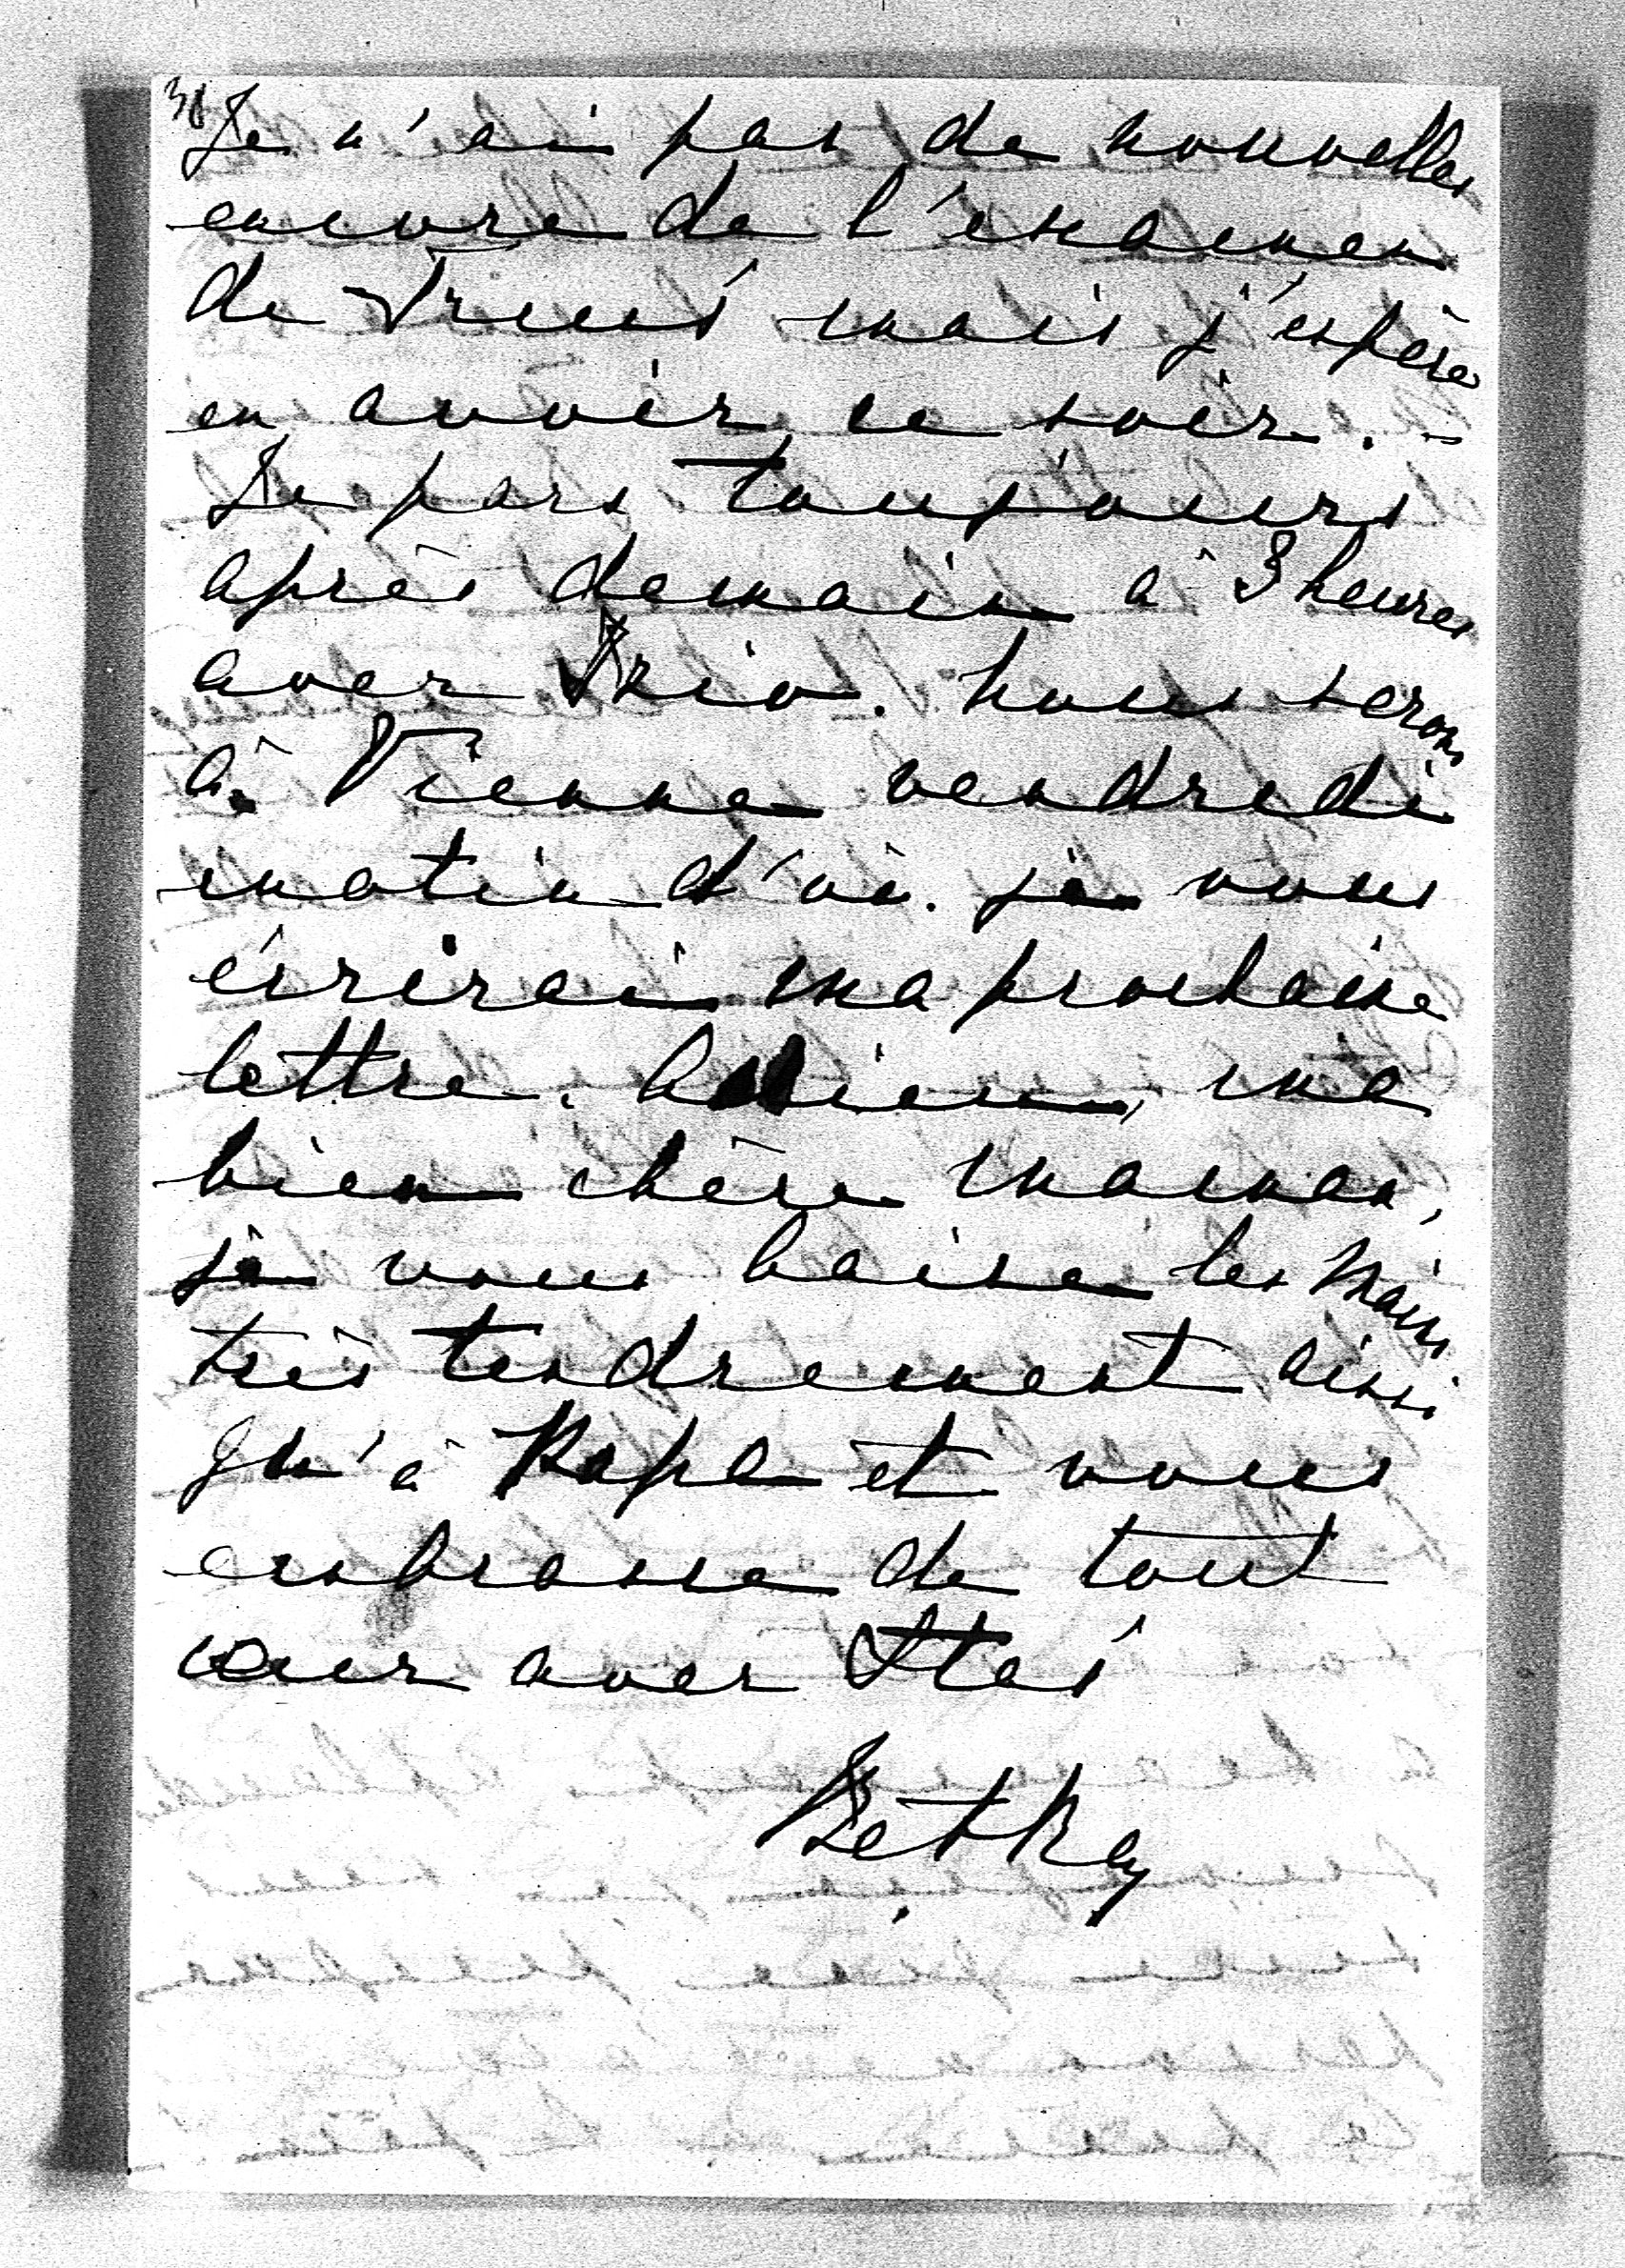 Je n'ai pas de nouvelles
encore de l'examen
de mais j'espère
en avoir ce soir. -
Je pars toujours
après demain à 3 heures
avec . Nous serons
à Vienne vendredi
matin d'où je vous
écrirai ma prochaine
lettre. , ma
bien chère maman,
je vous baise les mains
très tendrement ainsi
qu'à Papa et vous
embrasse de tout
cœur avec
Betka